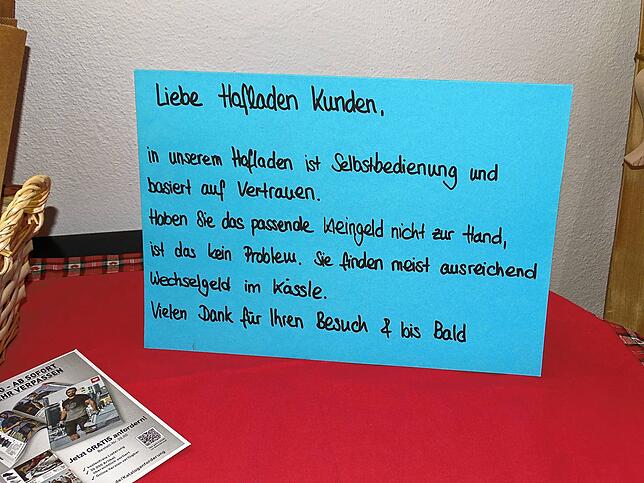 Liebe Hofladen Kunden,
in unserem Hofladen ist Selbstbedienung und
basiert auf Vertrauen.
Haben Sie das passende Kleingeld nicht zur Hand,
ist das kein Problem. Sie finden meist ausreichend
Wechselgeld im Kässle.
Vielen Dank für Ihren Besuch & bis Bald
- AB SOFORT
VERPASSEN
Jetzt GRATIS anfordern!